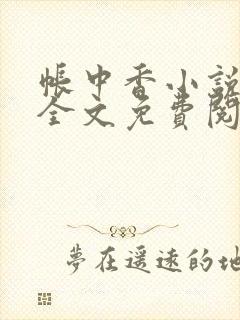 帳中香小說
全文免費閱
夢在遥遠的地